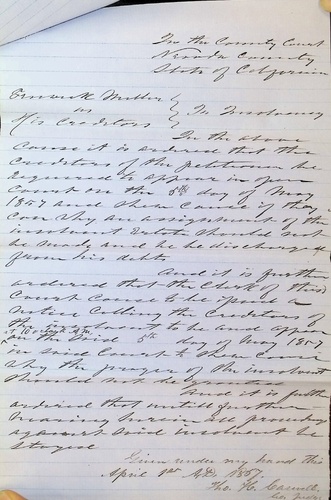 In the County Court
Nevada County
State of California
Miller
vs
His Creditors
In Insolvency
In the above
Cause it is ordered that the
creditors of the petitioner be
required to appear in open
Court on the 5th day of May
1857 and show cause if they
can why an assignment of the
insolvent Estate should not
be made and he be discharged
from his debts
And it is further
ordered that the Clerk of this
Court cause to be a
notice calling the Creditors of
to be and appear
on the said 5th day of May 1857
in said Court to show cause
why the prayer of the insolvent
should not be granted
And it is further
ordered that until further
hearing herein all proceedings
against said insolvent be
stayed
Given under my hand this
April 1st AD. 1857
Tho. H. Caswell
Co. Judge